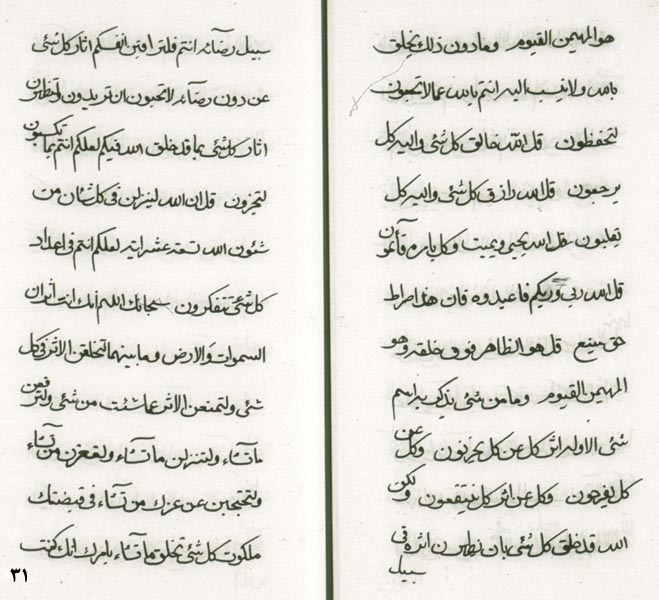 هو المهيمن القيوم وما دون ذلك يخلق
بالله ولا ينسب اليه انتم بالله عما لا تحبون
لتحفظون قل الله خالق كل شئ واليه كل
يرجعون قل الله رازق كل شئ واليه كل
يقلبون قل الله يحيى ويميت وكل بامره قائمون
قل الله ربى وربكم فاعبدوه فان هذا صراط
حق منيع قل هو الظاهر فوق خلقه وهو
المهيمن القيوم وما من شئ يذكر به اسم
شئ الا وله اثر كل عن كل يحزنون وكل عن
كل يفرحون وكل عن اثر كل ينتفعون ولكن
الله قد خلق كل شئ بان تظهرن اثره فى
سبيل
سبيل رضآئه انتم فلتراقبن انفسكم اثار كل شئ
عن دون رضآئه لا تحبون ان تريدون ولتظهرن
اثار كل شئ بما قد خلق الله فيكم لعلكم انتم بما تكسبون
لتجزون قل ان الله لينزلن فى كل شأن من
شئون الله تسعة عشر اية لعلكم انتم فى اعداد
كل شئ تتفكرون سبحانك اللهم انك انت اثران
السموات والارض وما بينهما لتخلقن الاثر فى كل
شئ ولتمنعن الاثر عما شئت من شئ ولترفعن
ما تشاء ولتنزلن ما تشاء ولتعزن من تشاء
ولتحتجبن عن عزك من تشاء فى قبضتك
ملكوت كل شئ تخلق ما تشاء بامرك انك كنت
٣١